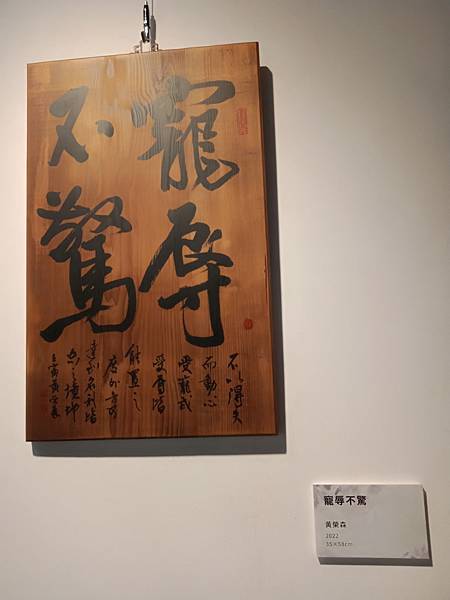 寵辱
不驚
不以得失
而動心
受寵或
受辱皆
能置之
度外方
達到名利皆
忘之境地
壬寅黃榮森
寵辱不驚
黃榮森
2022
35×58cm